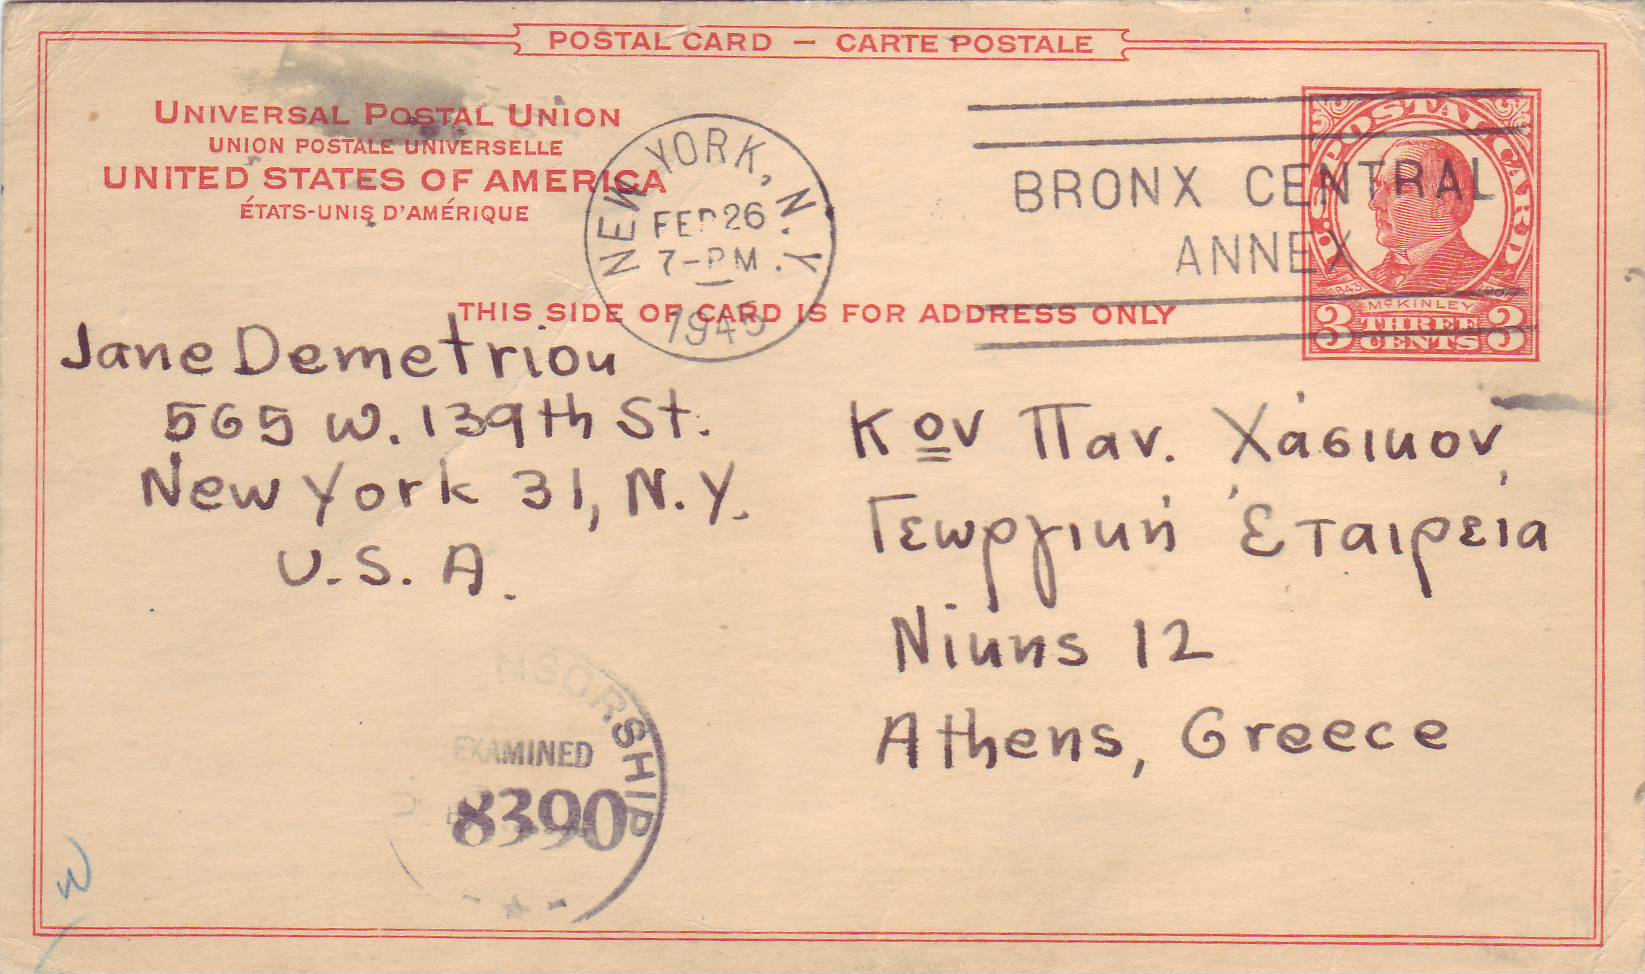 POSTAL CARD — CARTE POSTALE
UNIVERSAL POSTAL UNION
UNION POSTALE UNIVERSELLE
UNITED STATES OF AMERICA
ÉTATS-UNIS D'AMÉRIQUE
NEW YORK, N.Y.
FEB 26
7-PM
1945
BRONX CENTRAL
ANNEX
U.S. POSTAL CARD
1843 1907
McKINLEY
3 THREE CENTS 3
THIS SIDE OF CARD IS FOR ADDRESS ONLY
Jane Demetriou
565 W. 139th St.
New York 31, N.Y.
U.S.A.
Κον Παν. Χάσικον,
Γεωργικὴ Ἑταιρεία
Νίκης 12
Athens, Greece
NSORSHIP
EXAMINED
8390